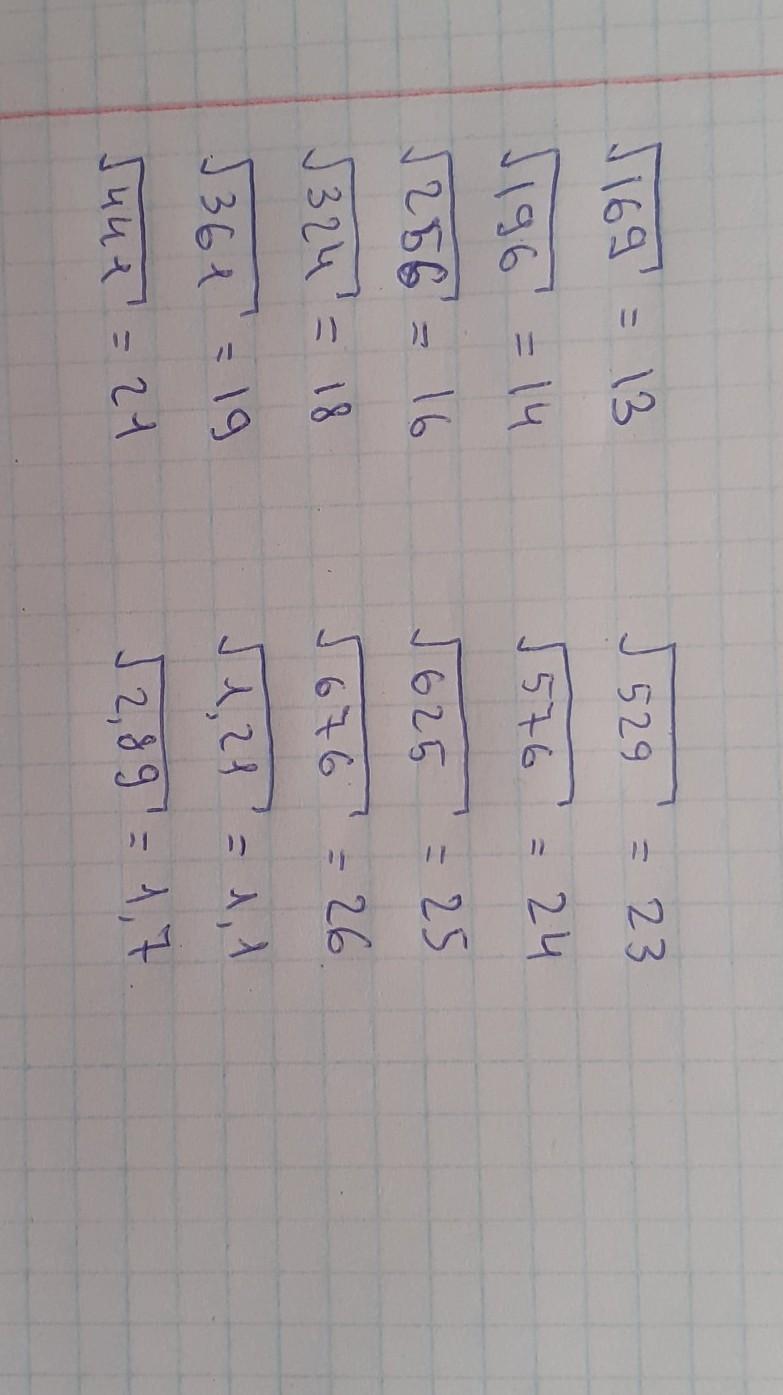 √169 = 13
√196 = 14
√256 = 16
√324 = 18
√361 = 19
√441 = 21
√529 = 23
√576 = 24
√625 = 25
√676 = 26
√1,21 = 1,1
√2,89 = 1,7